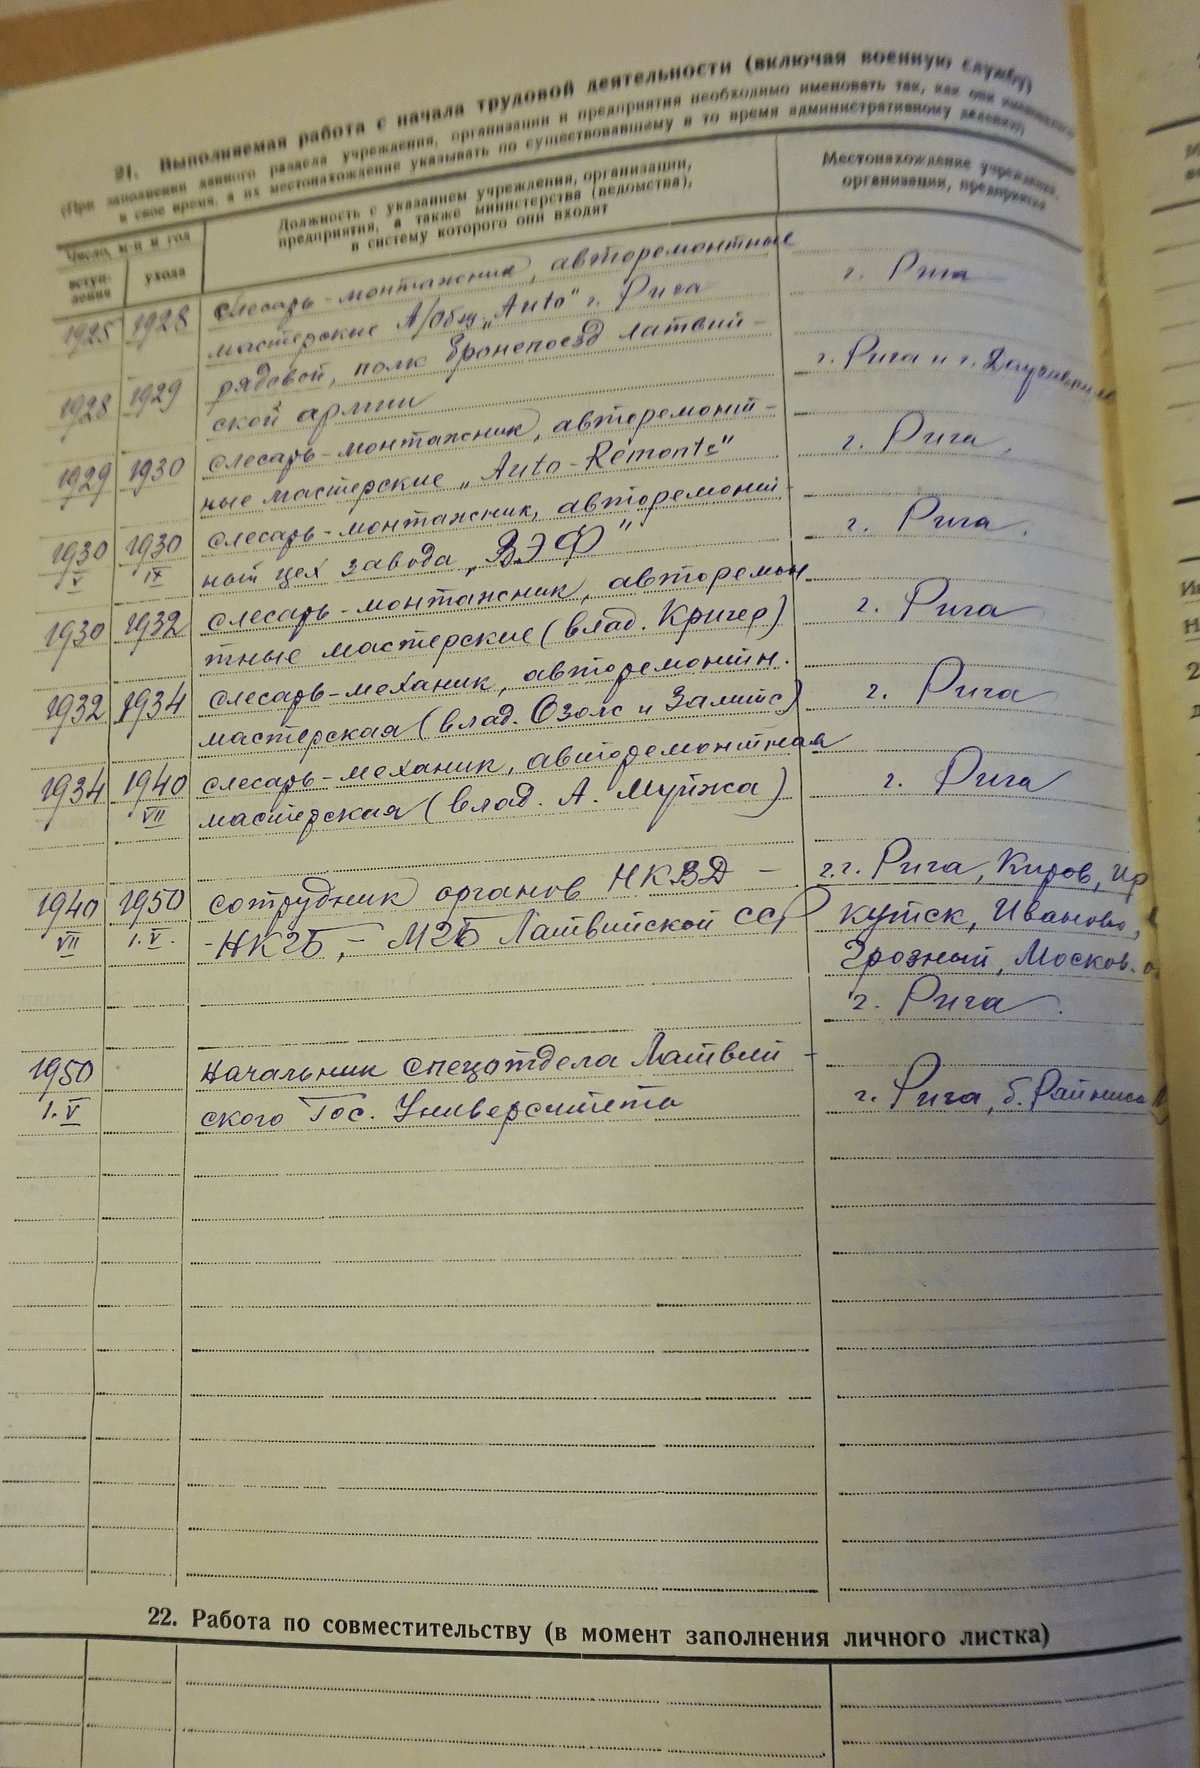 21. Выполняемая работа с начала трудовой деятельности (включая военную службу)
(При заполнении данного раздела учреждения, организации и предприятия необходимо именовать так, как они именовались
в свое время, а их местонахождение указывать по существовавшему в то время административному делению)
Число, м-ц и год
вступ-
ления
ухода
Должность с указанием учреждения, организации,
предприятия, а также министерства (ведомства),
в систему которого они входят
Местонахождение учреждения,
организации, предприятия
1925 1928 слесарь-монтажник, авторемонтные г. Рига
мастерские А/общ. „Auto" г. Рига
1928 1929 рядовой, полк Бронепоезд латвий- г. Рига и г. Даугавпилс
ской армии
1929 1930 слесарь-монтажник, авторемонт- г. Рига,
ные мастерские „Auto-Remonts"
1930 1930 слесарь-монтажник, авторемонт- г. Рига.
V IX ный цех завода „ВЭФ"
1930 1932 слесарь-монтажник, авторемон г. Рига
тные мастерские (влад. Кригер)
1932 1934 слесарь-механик, авторемонтн. г. Рига
мастерская (влад. Озолс и Залитс)
1934 1940 слесарь-механик, авторемонтная г. Рига
VII мастерская (влад. А. Муйжа)
1940 1950 сотрудник органов НКВД - г.г. Рига, Киров, Ир
VII 1.V. -НКГБ, - МГБ Латвийской ССР кутск, Иваново,
Грозный, Москов.
г. Рига.
1950 Начальник спецотдела Латвий-
1.V ского Гос. Университета г. Рига, б. Райниса
22. Работа по совместительству (в момент заполнения личного листка)